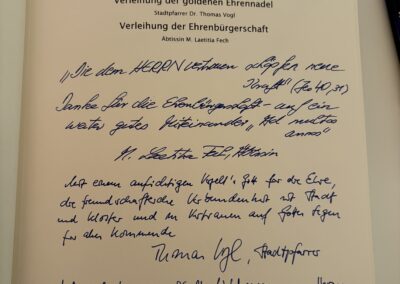 Verleihung der goldenen Ehrennadel
Stadtpfarrer Dr. Thomas Vogl
Verleihung der Ehrenbürgerschaft
Äbtissin M. Laetitia Fech
„Die dem HERRN vertrauen schöpfen neue
Kraft" (Jes 40,31)
Danke für die Ehrenbürgerschaft - auf ein
weiter gutes Miteinander „Ad multos
annos"
M. Laetitia Fech, Äbtissin
Mit einem aufrichtigen Vergelt's Gott für die Ehre,
die freundschaftliche Verbundenheit mit Stadt
und Kloster und im Vertrauen auf Gottes Segen
für alles Kommende
Thomas Vogl, Stadtpfarrer